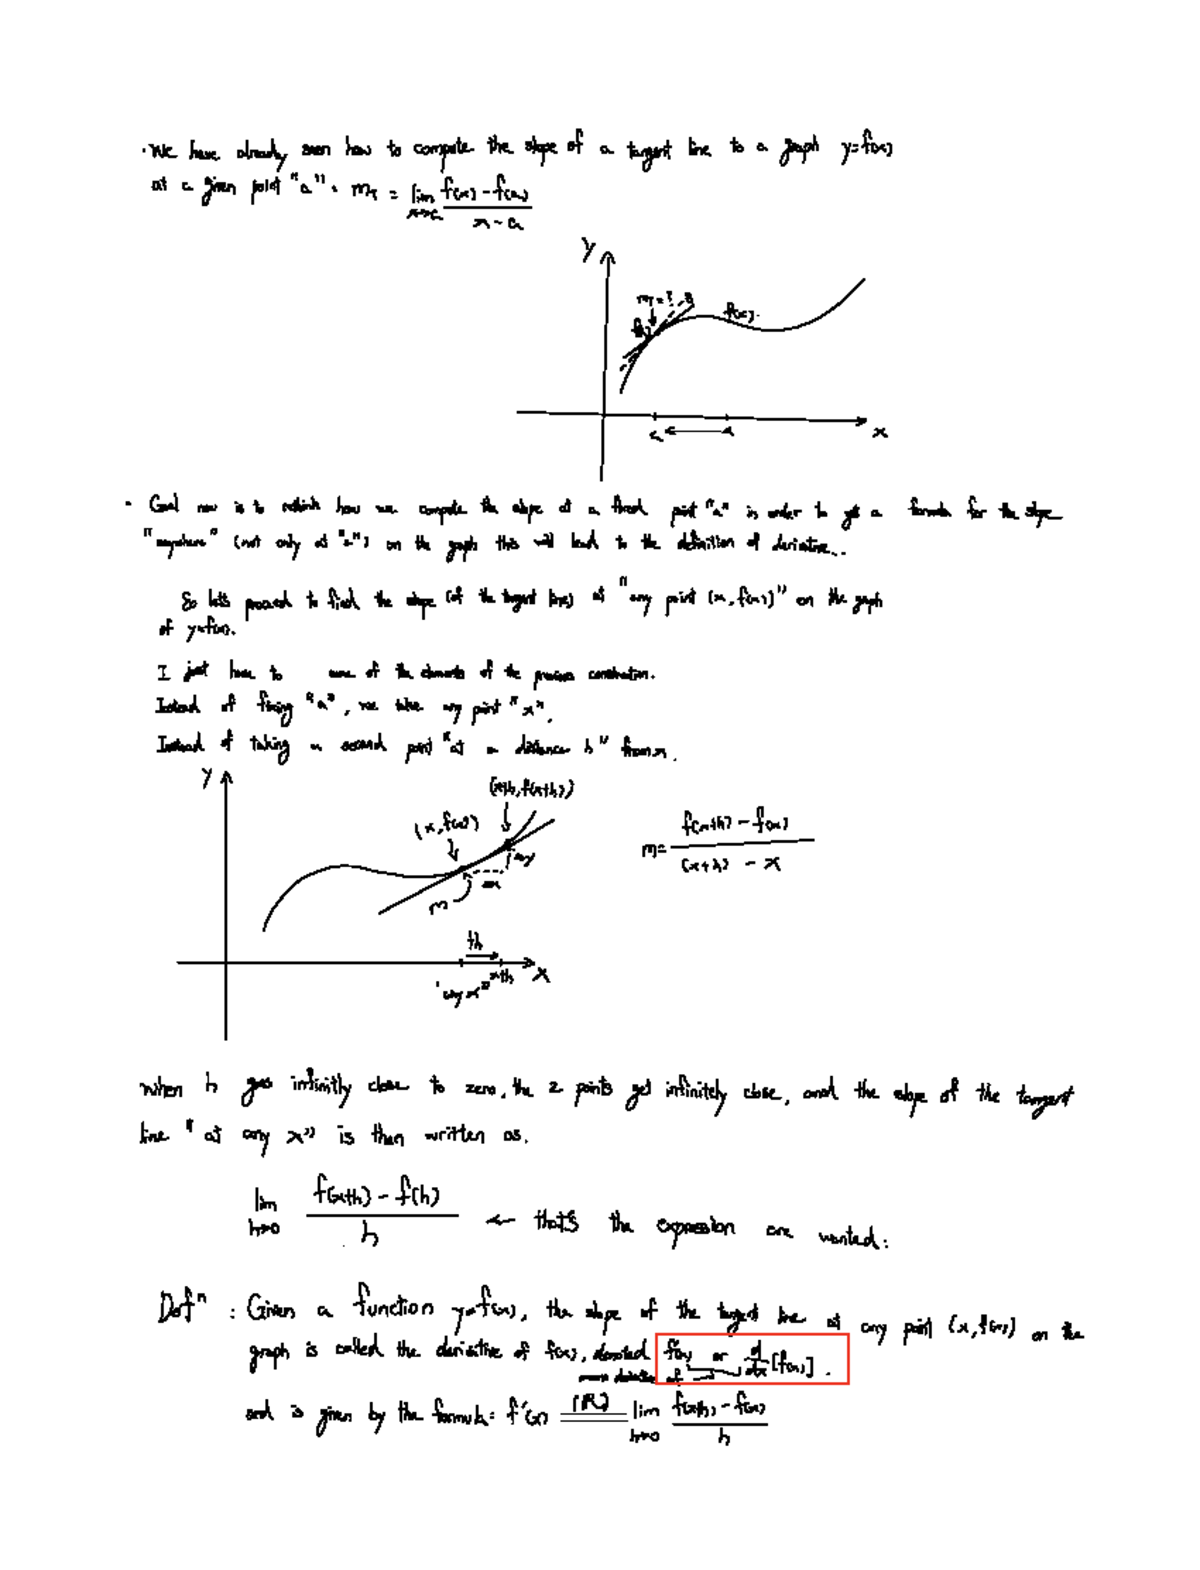 · We have already seen how to compute the slope of a tangent line to a graph y=f(x)
at a given point "a". m_T = lim x→a (f(x) - f(a)) / (x - a)
y
m_T = ?
f(x)
a
x
· Goal now is to rethink how we compute the slope at a fixed point "a" in order to get a formula for the slope
"anywhere" (not only at "a") on the graph this will lead to the definition of derivative..
So lets proceed to find the slope (of the tangent line) at "any point (x, f(x))" on the graph
of y=f(x).
I just have to some of the elements of the previous construction.
Instead of fixing "a", we take any point "x".
Instead of taking a second point "at a distance h" from x.
y
(x+h, f(x+h))
(x, f(x))
Δy
Δx
m
m = (f(x+h) - f(x)) / ((x+h) - x)
+h
x
x+h
"any x"
when h goes infinitly close to zero, the 2 points get infinitely close, and the slope of the tangent
line "at any x" is then written as.
lim h→0 (f(x+h) - f(h)) / h ← that's the expression are wanted:
Def^n : Given a function y=f(x), the slope of the tangent line at any point (x, f(x)) on the
graph is called the derivative of f(x), denoted f'(x) or d/dx [f(x)].
means derivative of
and is given by the formula: f'(x) = lim h→0 (f(x+h) - f(x)) / h